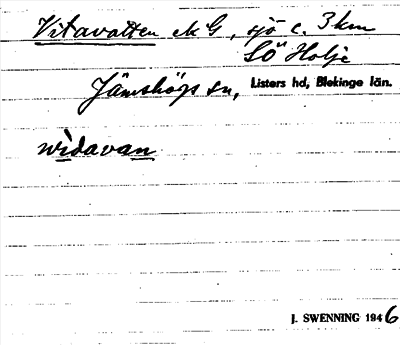 Vitavatten ek G, sjö c. 3 km
SÖ Holje
Jämshögs sn, Listers hd, Blekinge län.
widavan
J. SWENNING 1946